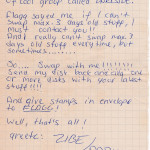 Of cool group called
Flagg said me, if I can't
swap max. 3 days old stuff, I
must contact you!!
And I really can't swap max 3
days old stuff every time, but
sometimes.........
So.... Swap with me!!!!!!!!
Send my disk back one day and
or more disks with your latest
stuff!!!!
And give stamps in envelope
to
Well, that's all!
greets: